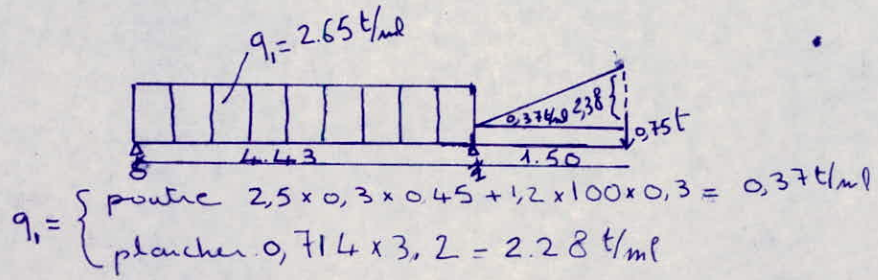 q₁= 2.65 t/ml
0,37t/ml 2,38
0,75t
4.43 1.50
q₁ = { poutre 2,5 x 0,3 x 0.45 + 1,2 x 100 x 0,3 = 0,37 t/ml
plancher. 0,714 x 3,2 = 2.28 t/ml